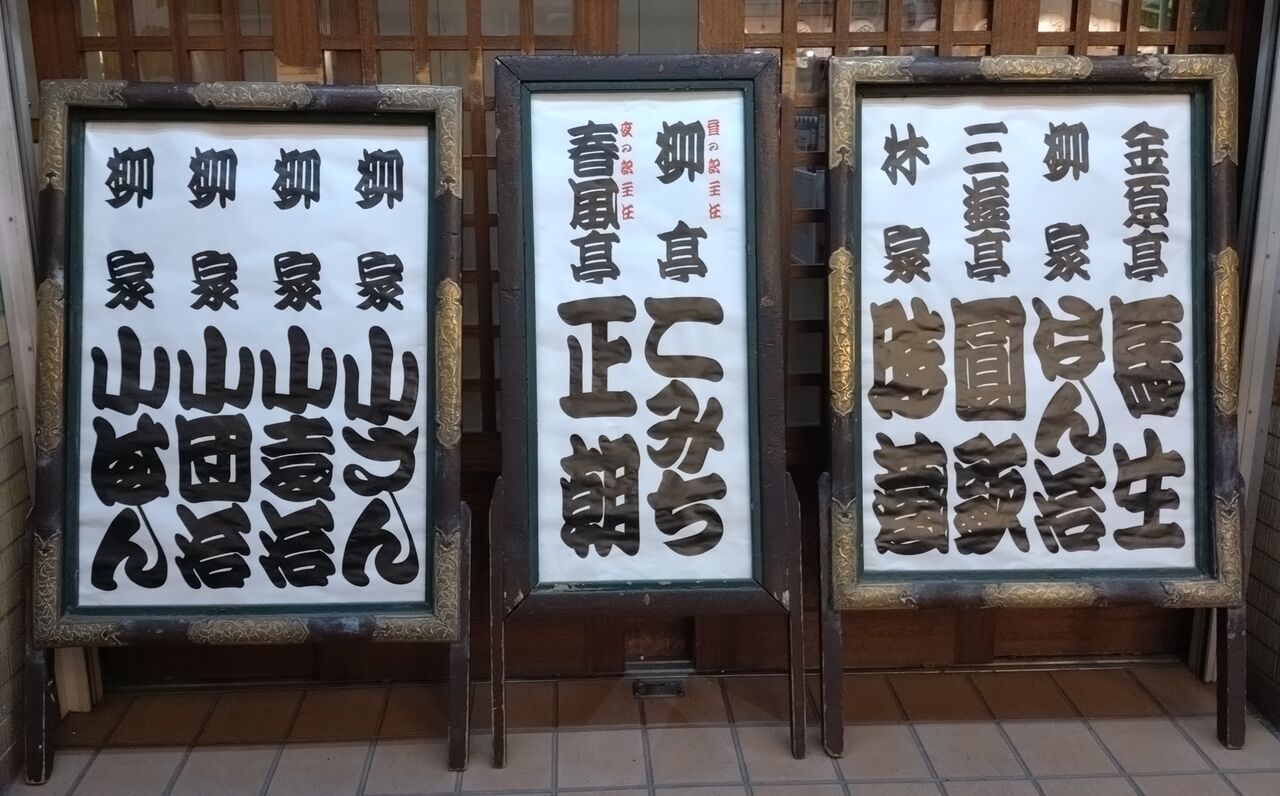 金原亭 馬生
柳家 はん治
三遊亭 圓歌
林家 時蔵
昼の部主任
柳亭 こみち
夜の部主任
春風亭 正朝
柳家 小さん
柳家 小袁治
柳家 小団治
柳家 小満ん